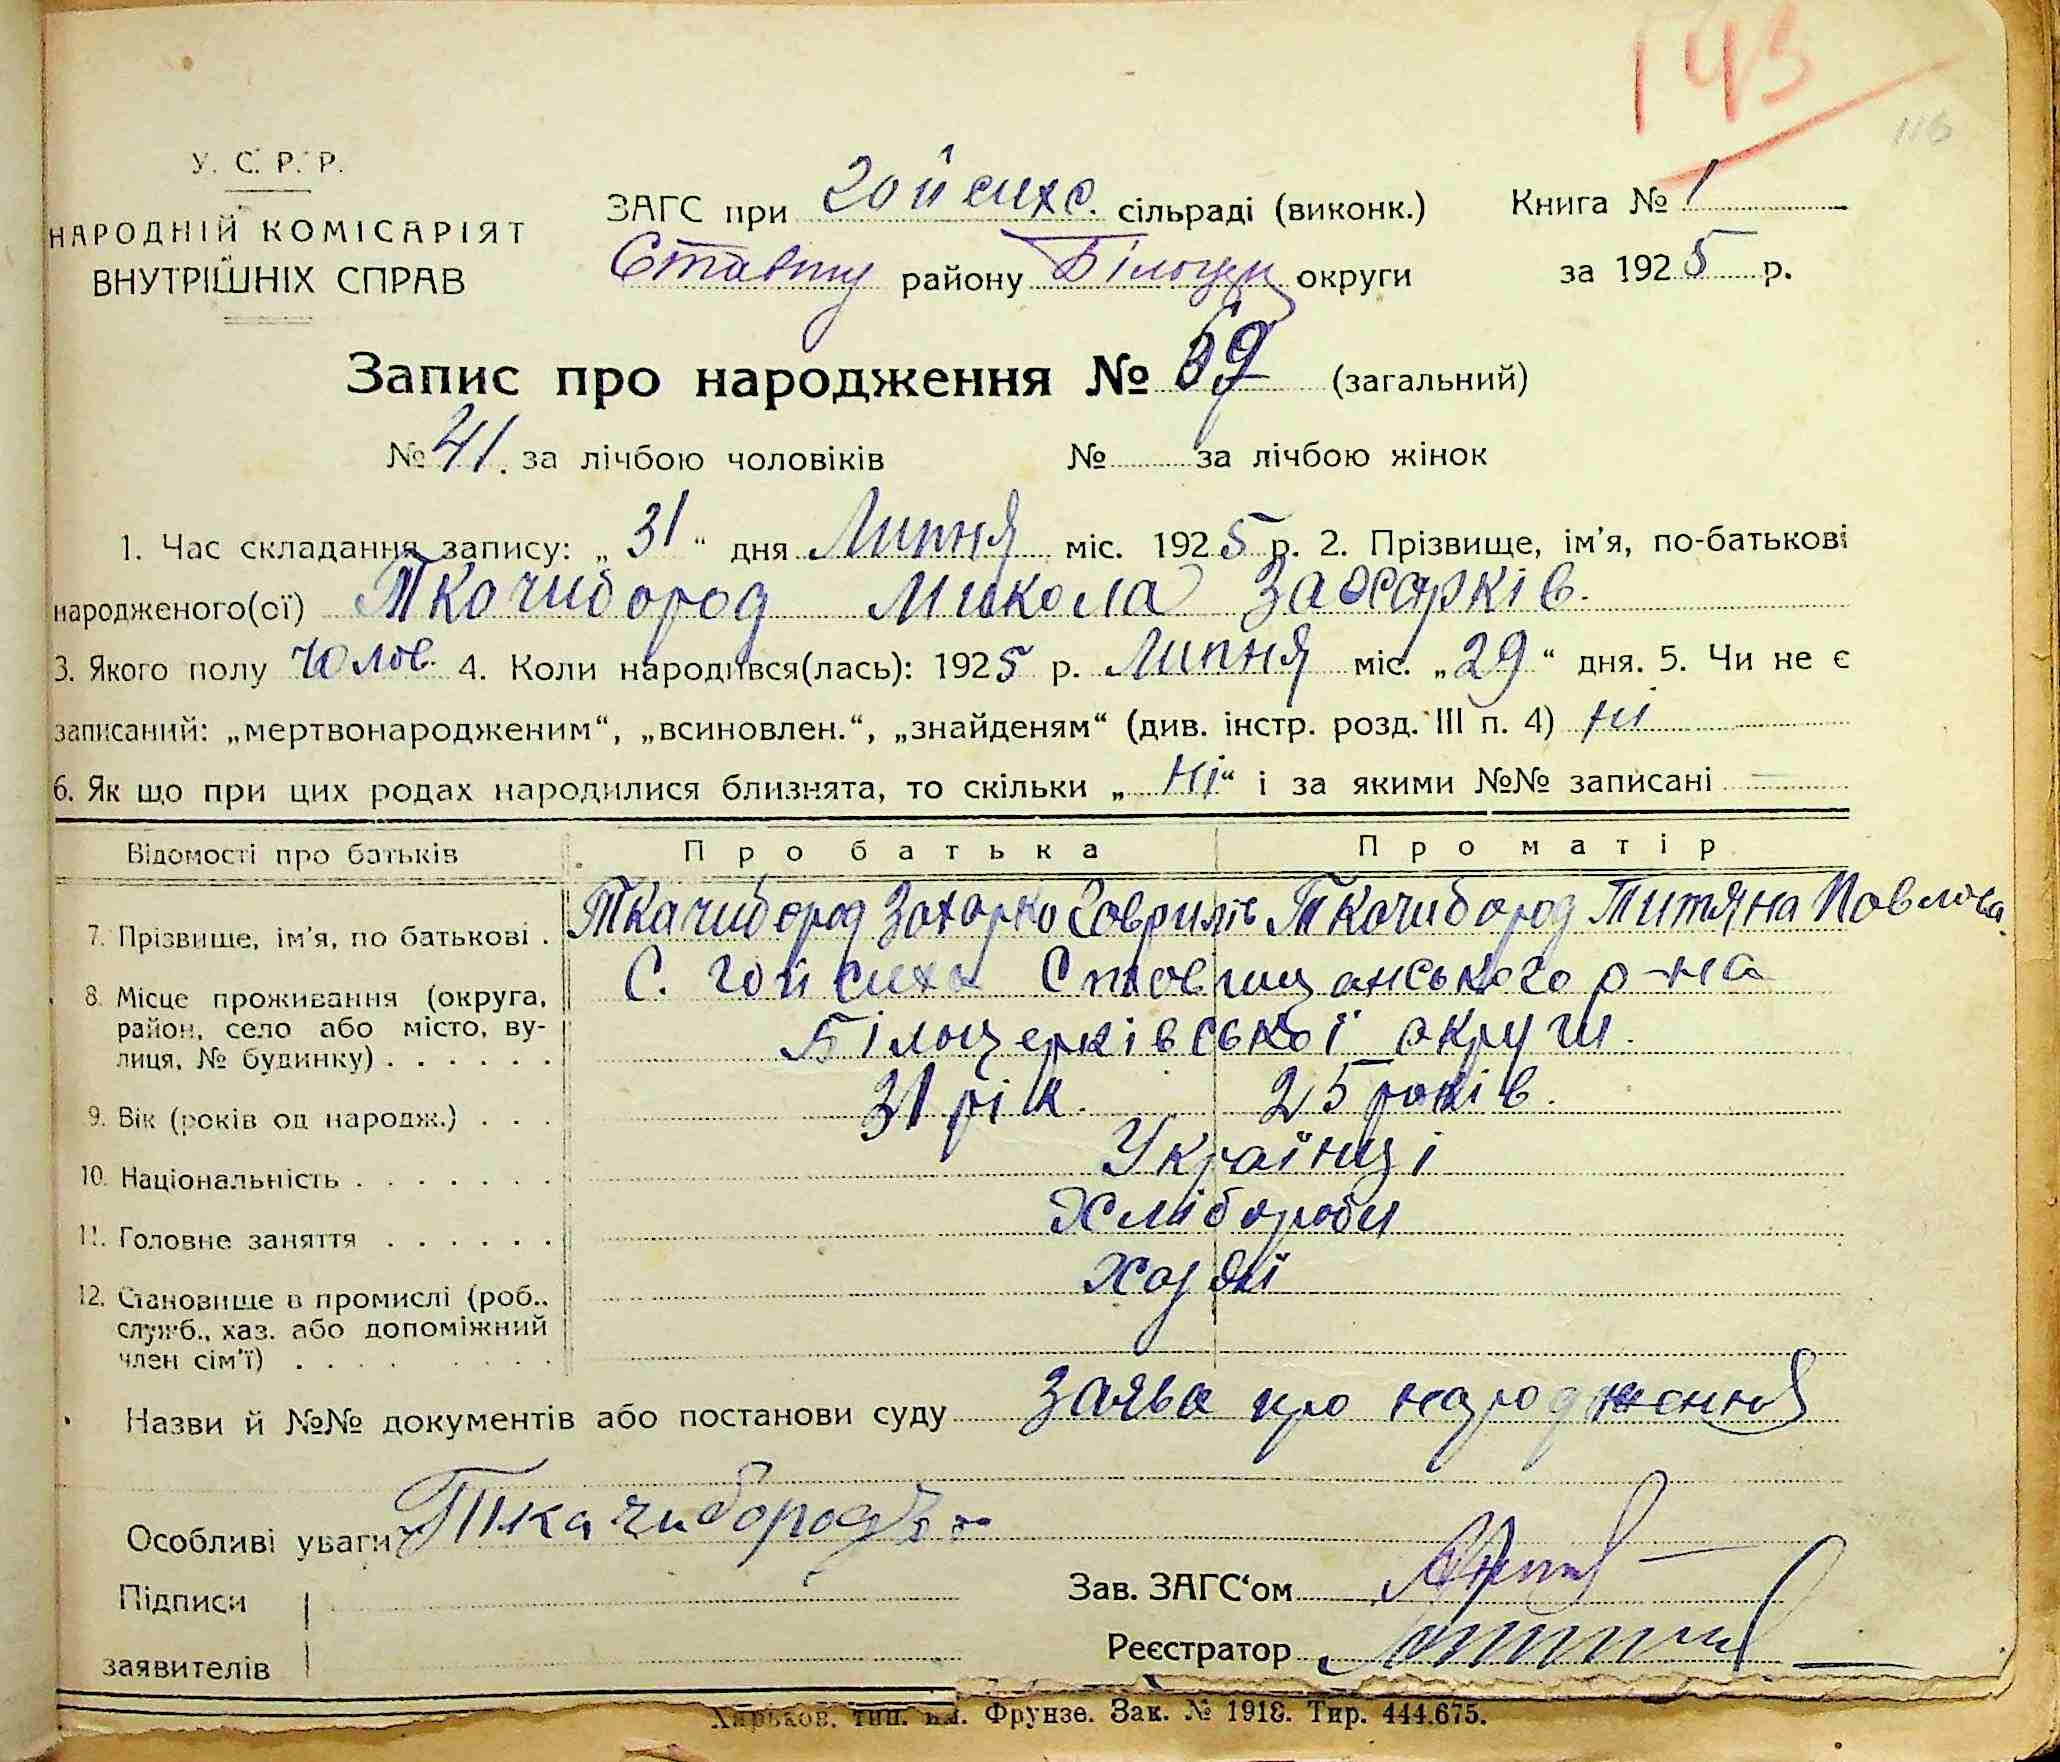 143
У. С. Р. Р.
НАРОДНІЙ КОМІСАРІЯТ
ВНУТРІШНІХ СПРАВ
ЗАГС при Гойсихс. сільраді (виконк.) Книга № 1
Ставищ району Білоцер округи за 1925 р.
Запис про народження № 69 (загальний)
№ 41. за лічбою чоловіків № за лічбою жінок
1. Час складання запису: „31“ дня Липня міс. 1925 р. 2. Прізвище, ім'я, по-батькові
народженого(ої) Ткачибород Микола Захарків.
3. Якого полу Чолов. 4. Коли народився(лась): 1925 р. Липня міс. „29“ дня. 5. Чи не є
записаний: „мертвонародженим“, „всиновлен.“, „знайденям“ (див. інстр. розд. III п. 4) ні
6. Як що при цих родах народилися близнята, то скільки „Ні“ і за якими №№ записані
Відомості про батьків Про батька Про матір
7. Прізвище, ім'я, по батькові . Ткачибород Захарко Гаврилів Ткачибород Титяна Павлова
8. Місце проживання (округа, С. Гойсиха Ставищанського р-на
район, село або місто, ву- Білоцерківської округи.
лиця, № будинку) . . . . . .
9. Вік (років од народж.) . . . 31 рік. 25 років.
10. Національність . . . . . . . Українці
11. Головне заняття . . . . . . Хлібороби
12. Становище в промислі (роб.,
служб., хаз. або допоміжний
член сім'ї) . . . . . . . . .
Назви й №№ документів або постанови суду Заява про народження
Особливі уваги Ткачибород
Підписи Зав. ЗАГС'ом
заявителів Реєстратор
Харьков. тип. им. Фрунзе. Зак. № 1918. Тир. 444.675.